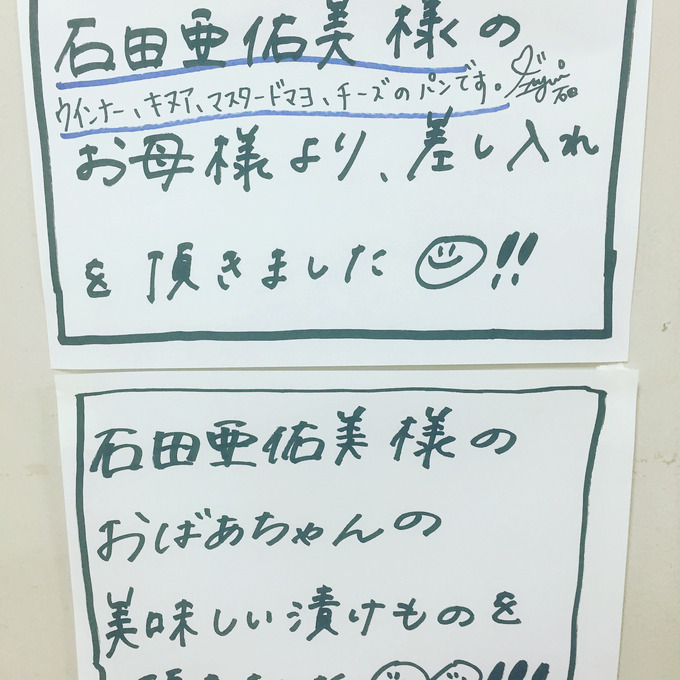 石田亜佑美様の
ウインナー、キヌア、マスタードマヨ、チーズのパンです。
お母様より、差し入れ
を頂きました!!
石田亜佑美様の
おばあちゃんの
美味しい漬けものを
頂きました!!!